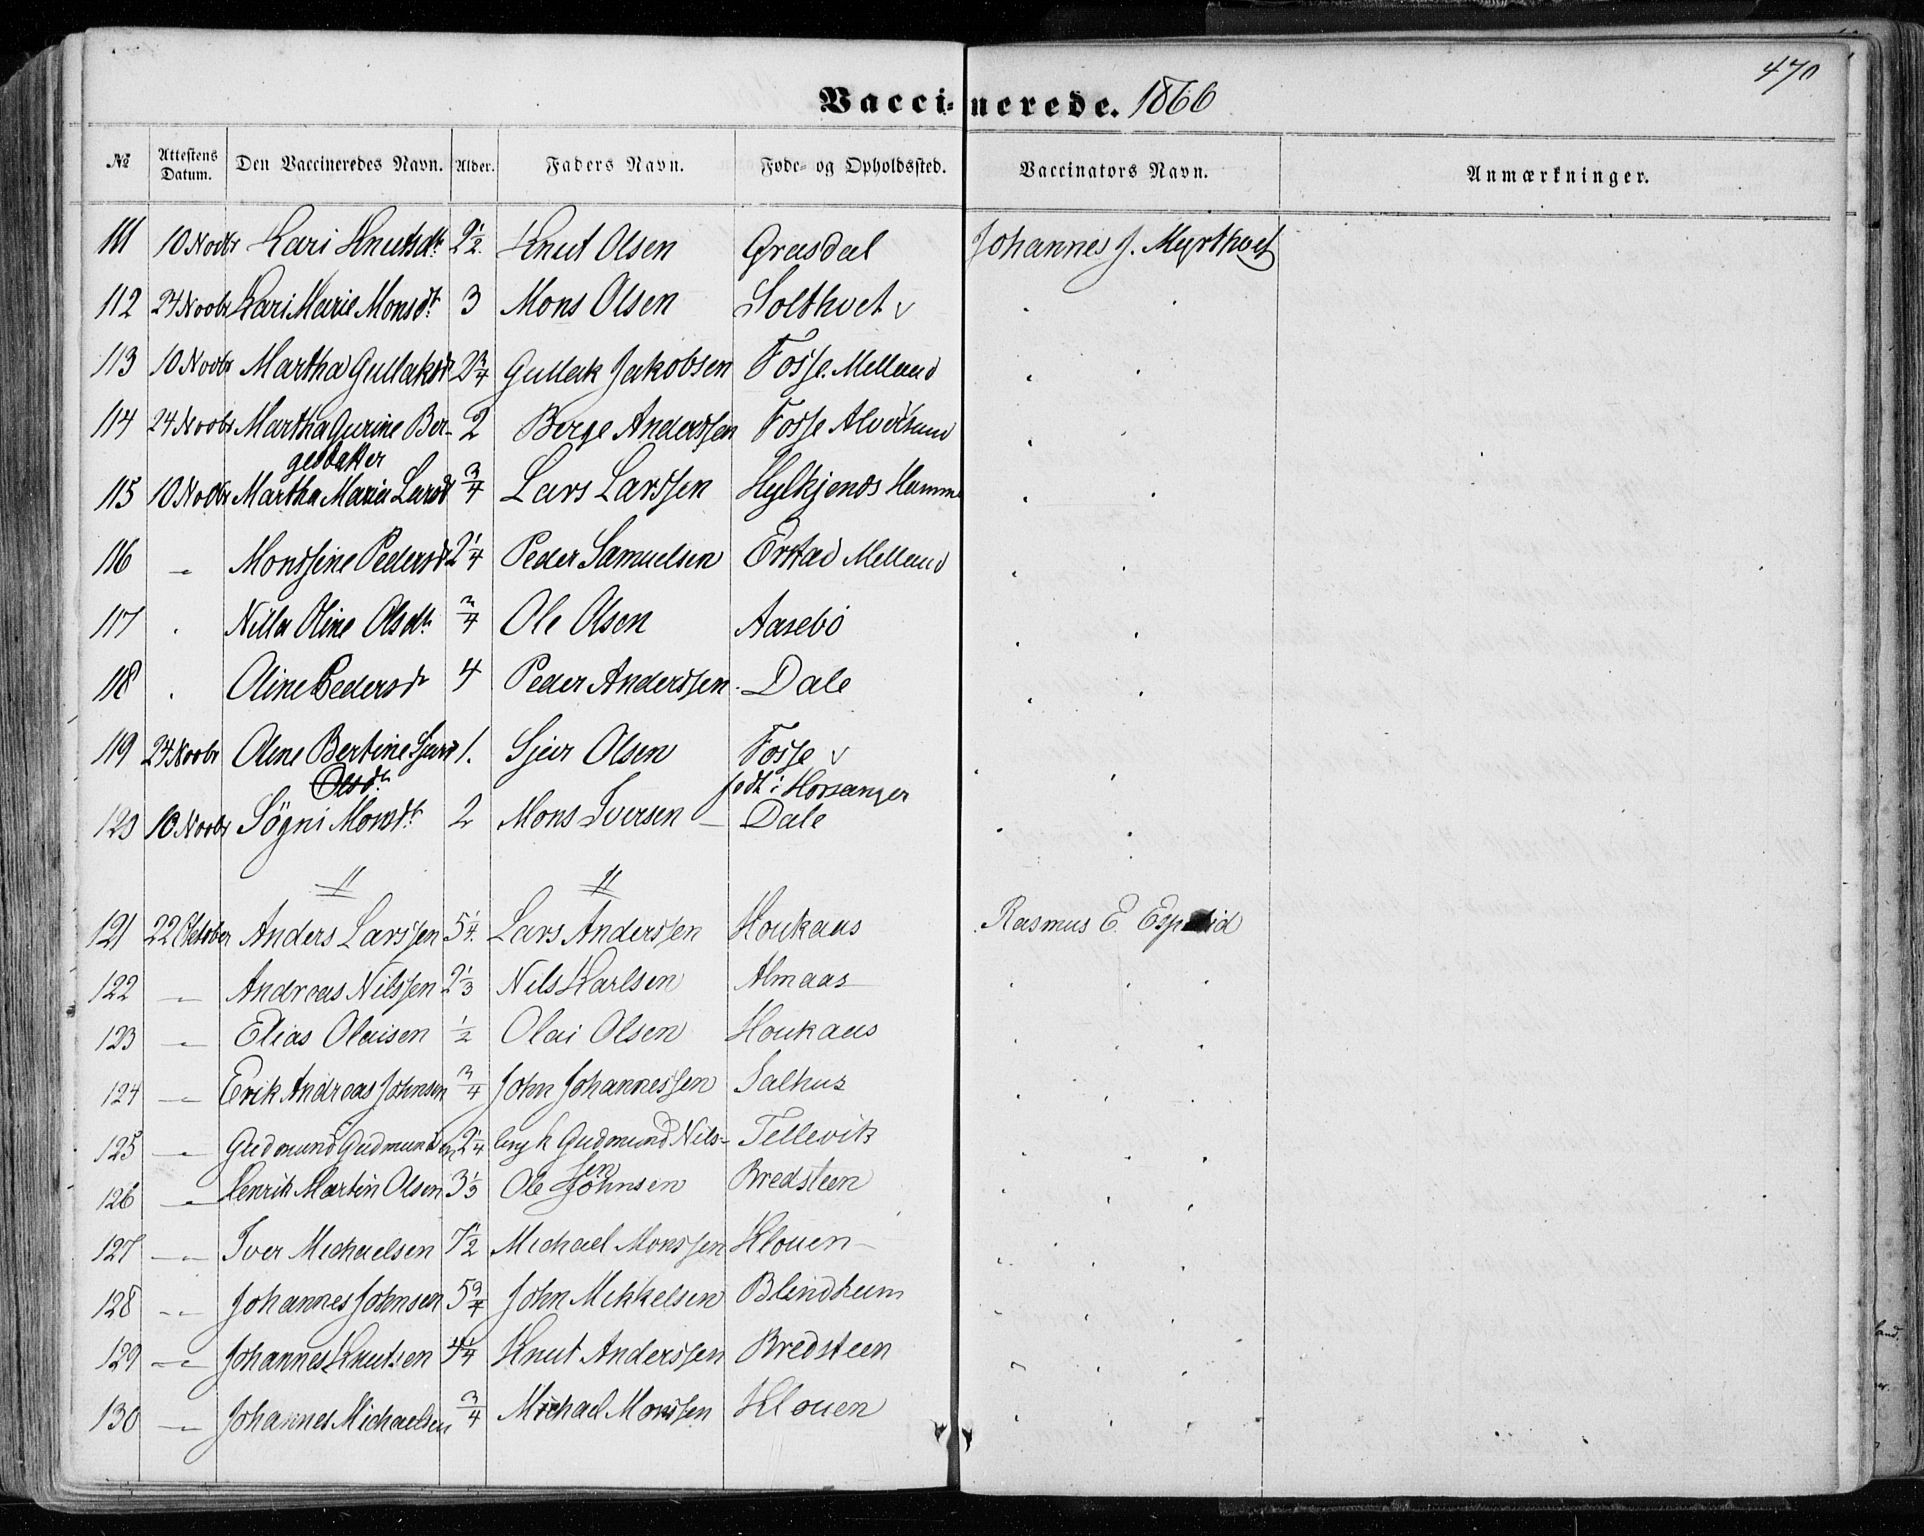 470
Vaccinerede. 1866
№ Attestens Datum. Den Vaccineredes Navn. Alder. Faders Navn. Føde- og Opholdssted. Vaccinators Navn. Anmærkninger.
111 10 Novbr Kari Knutsdr 2½ Knut Olsen Grasdal Johannes J. Myrthvet
112 24 Novbr Kari Marie Monsdr 3 Mons Olsen Solthvet v
113 10 Novbr Martha Gullaksdr 2¾ Gullak Jakobsen Fosse. Melland
114 24 Novbr Martha Gurine Ber- 2 Berge Anderssen Fosse Alversund
gesdatter
115 10 Novbr Martha Maria Larsdr ¾ Lars Larssen Hylkjends Hamme
116 " Monssine Pedersdr 2¼ Peder Samuelsen Erstad Melland
117 " Nilla Oline Olsdr ¾ Ole Olsen Aasebö
118 " Oline Pedersdr 4 Peder Anderssen Dale
119 24 Novbr Olene Bertine Sjurs 1. Sjur Olsen Fosse v
Olsdr født i Hosanger
120 10 Novbr Sögni Monsdr 2 Mons Iversen — Dale
121 22 Oktober Anders Larssen 5¼ Lars Anderssen Houkaas Rasmus E.
122 " Andreas Nilssen 2⅓ Nils Karlsen Almaas
123 " Elias Olaisen ½ Olai Olsen Houkaas
124 " Erik Andreas Johnsen ¾ John Johannessen Salhus
125 " Gudmund Gudmundsen 2¼ Gudmund Nils- Tellevik
sen
126 " Henrik Martin Olsen 3⅓ Ole Johnsen Bredsteen
127 " Iver Michaelsen 7½ Michael Monssen Klouen
128 " Johannes Johnsen 5¾ John Mikkelsen Blindheim
129 " Johannes Knutsen 4¼ Knut Anderssen Bredsteen
130 " Johannes Michaelsen ¾ Michael Monssen Klouen